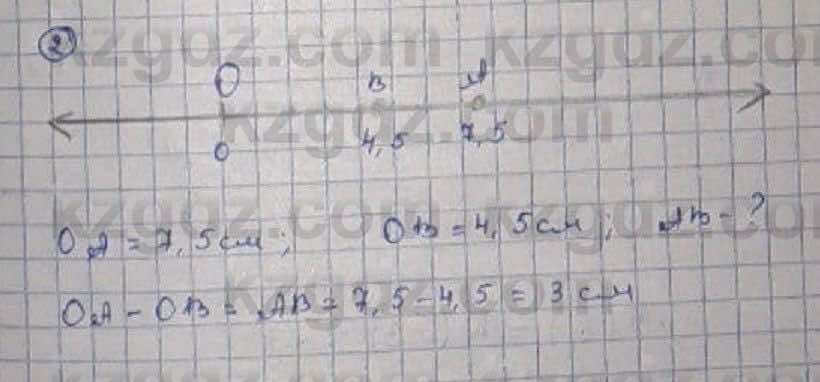 2
kzgdz.com kzgdz.com
O B A
kzgdz.com
0 4,5 7,5
kzgdz.com kzgdz.com
OA = 7,5 см; OB = 4,5 см; AB - ?
OA - OB = AB = 7,5 - 4,5 = 3 см
kzgdz.com